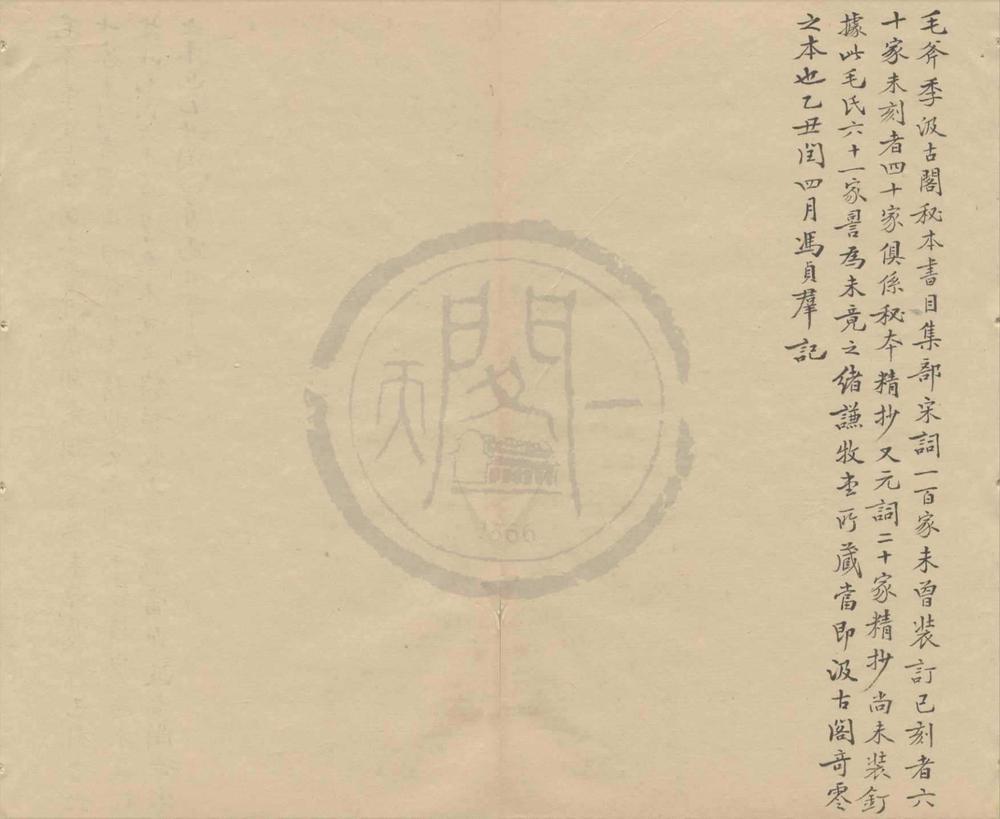 毛斧季汲古閣秘本書目集部宋詞一百家未曾裝訂已刻者六
十家未刻者四十家俱係秘本精抄又元詞二十家精抄尚未裝釘
據此毛氏六十一家詈為未竟之緒謙牧堂所藏當即汲古閣奇零
之本也乙丑閏四月馮貞羣記
天一閣
1566